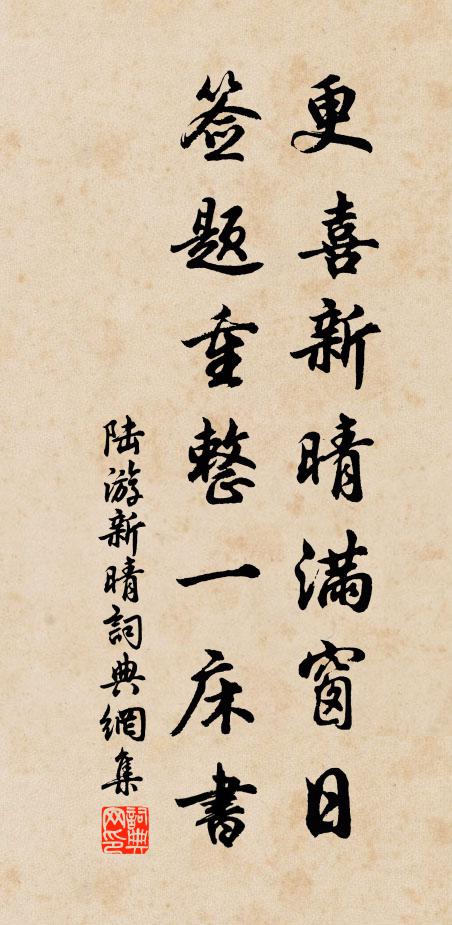 更喜新晴满窗日
签题重整一床書
陆游新晴詞典網集
詞典网印